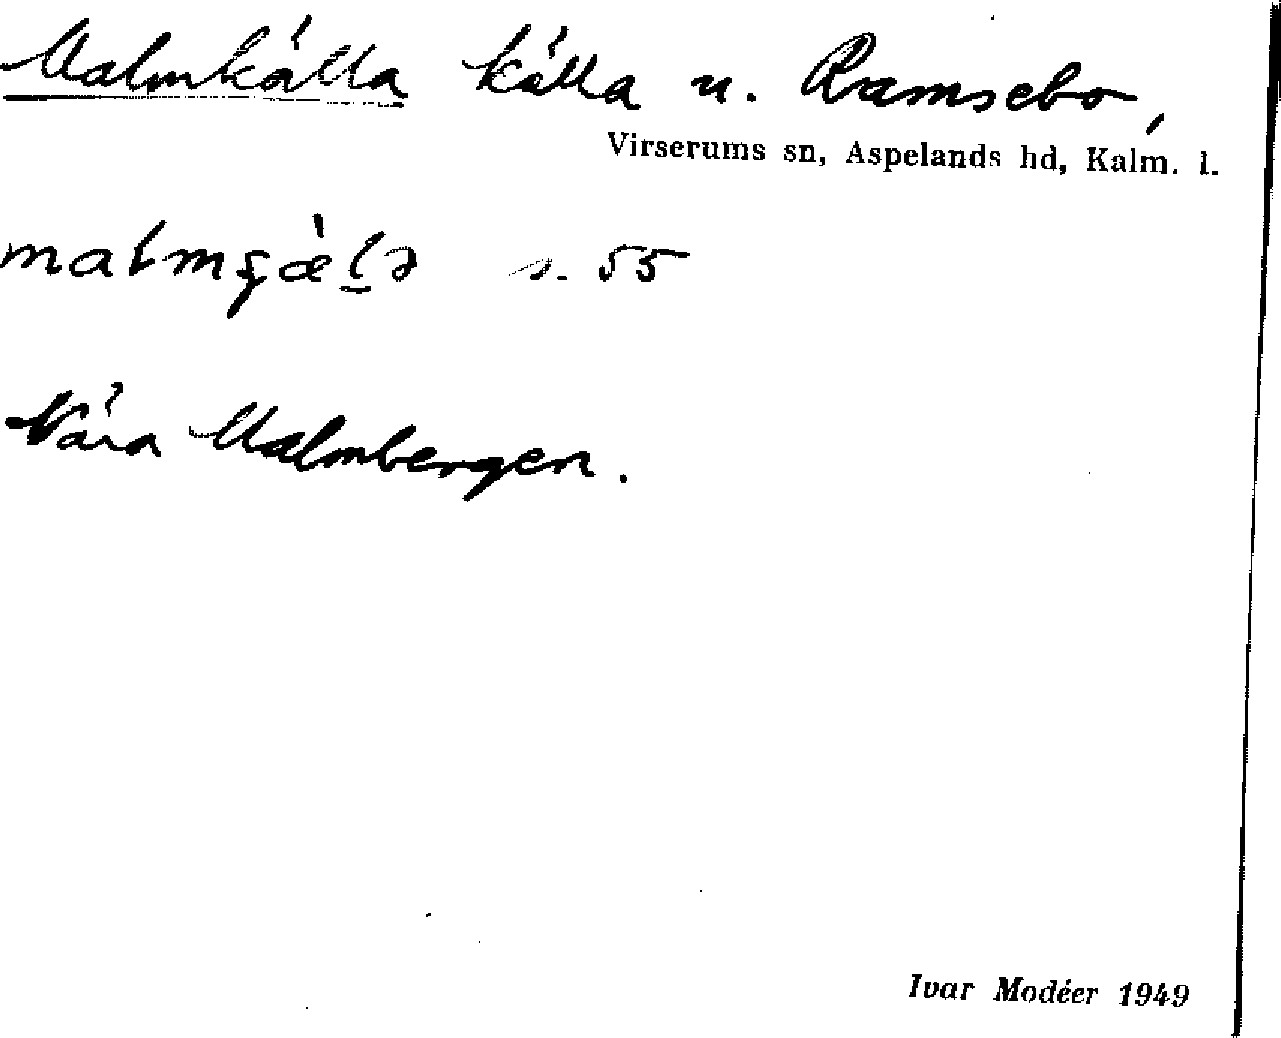 Malmkälla källa u. Ramsebo,
Virserums sn, Aspelands hd, Kalm. l.
s. 55
Nära Malmbergen.
Ivar Modéer 1949